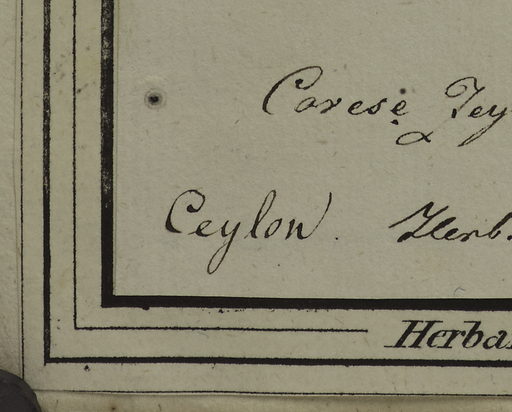 Carese Zey
Ceylon. Herb.
Herba